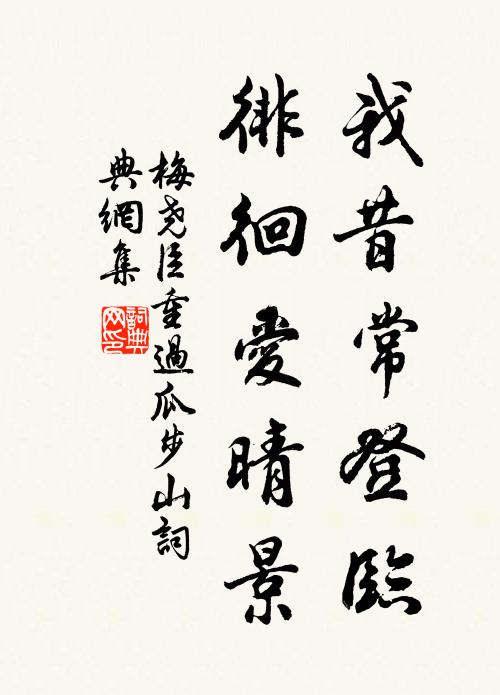 我昔常登臨
徘徊愛晴景
梅尧臣重過瓜步山詞
典網集
詞典
网印